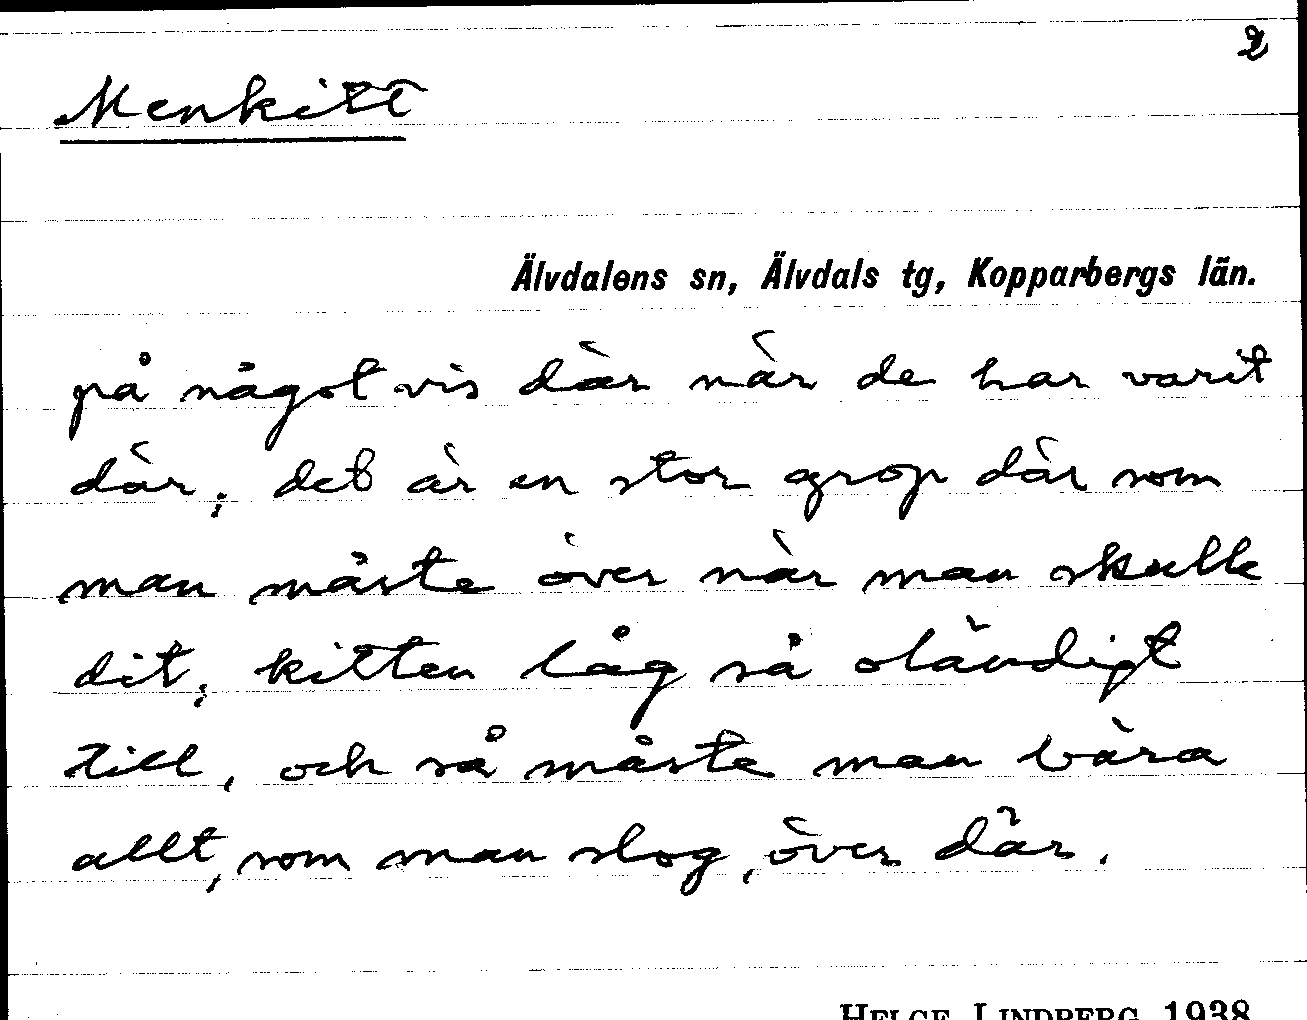 2
Menkitt
Älvdalens sn, Älvdals tg, Kopparbergs län.
på något vis där när de har varit
där; det är en stor grop där som
man måste över när man skulle
dit; kitten låg så oländigt
till, och så måste man bära
allt, som man slog, över där.
HELGE LINDBERG 1938